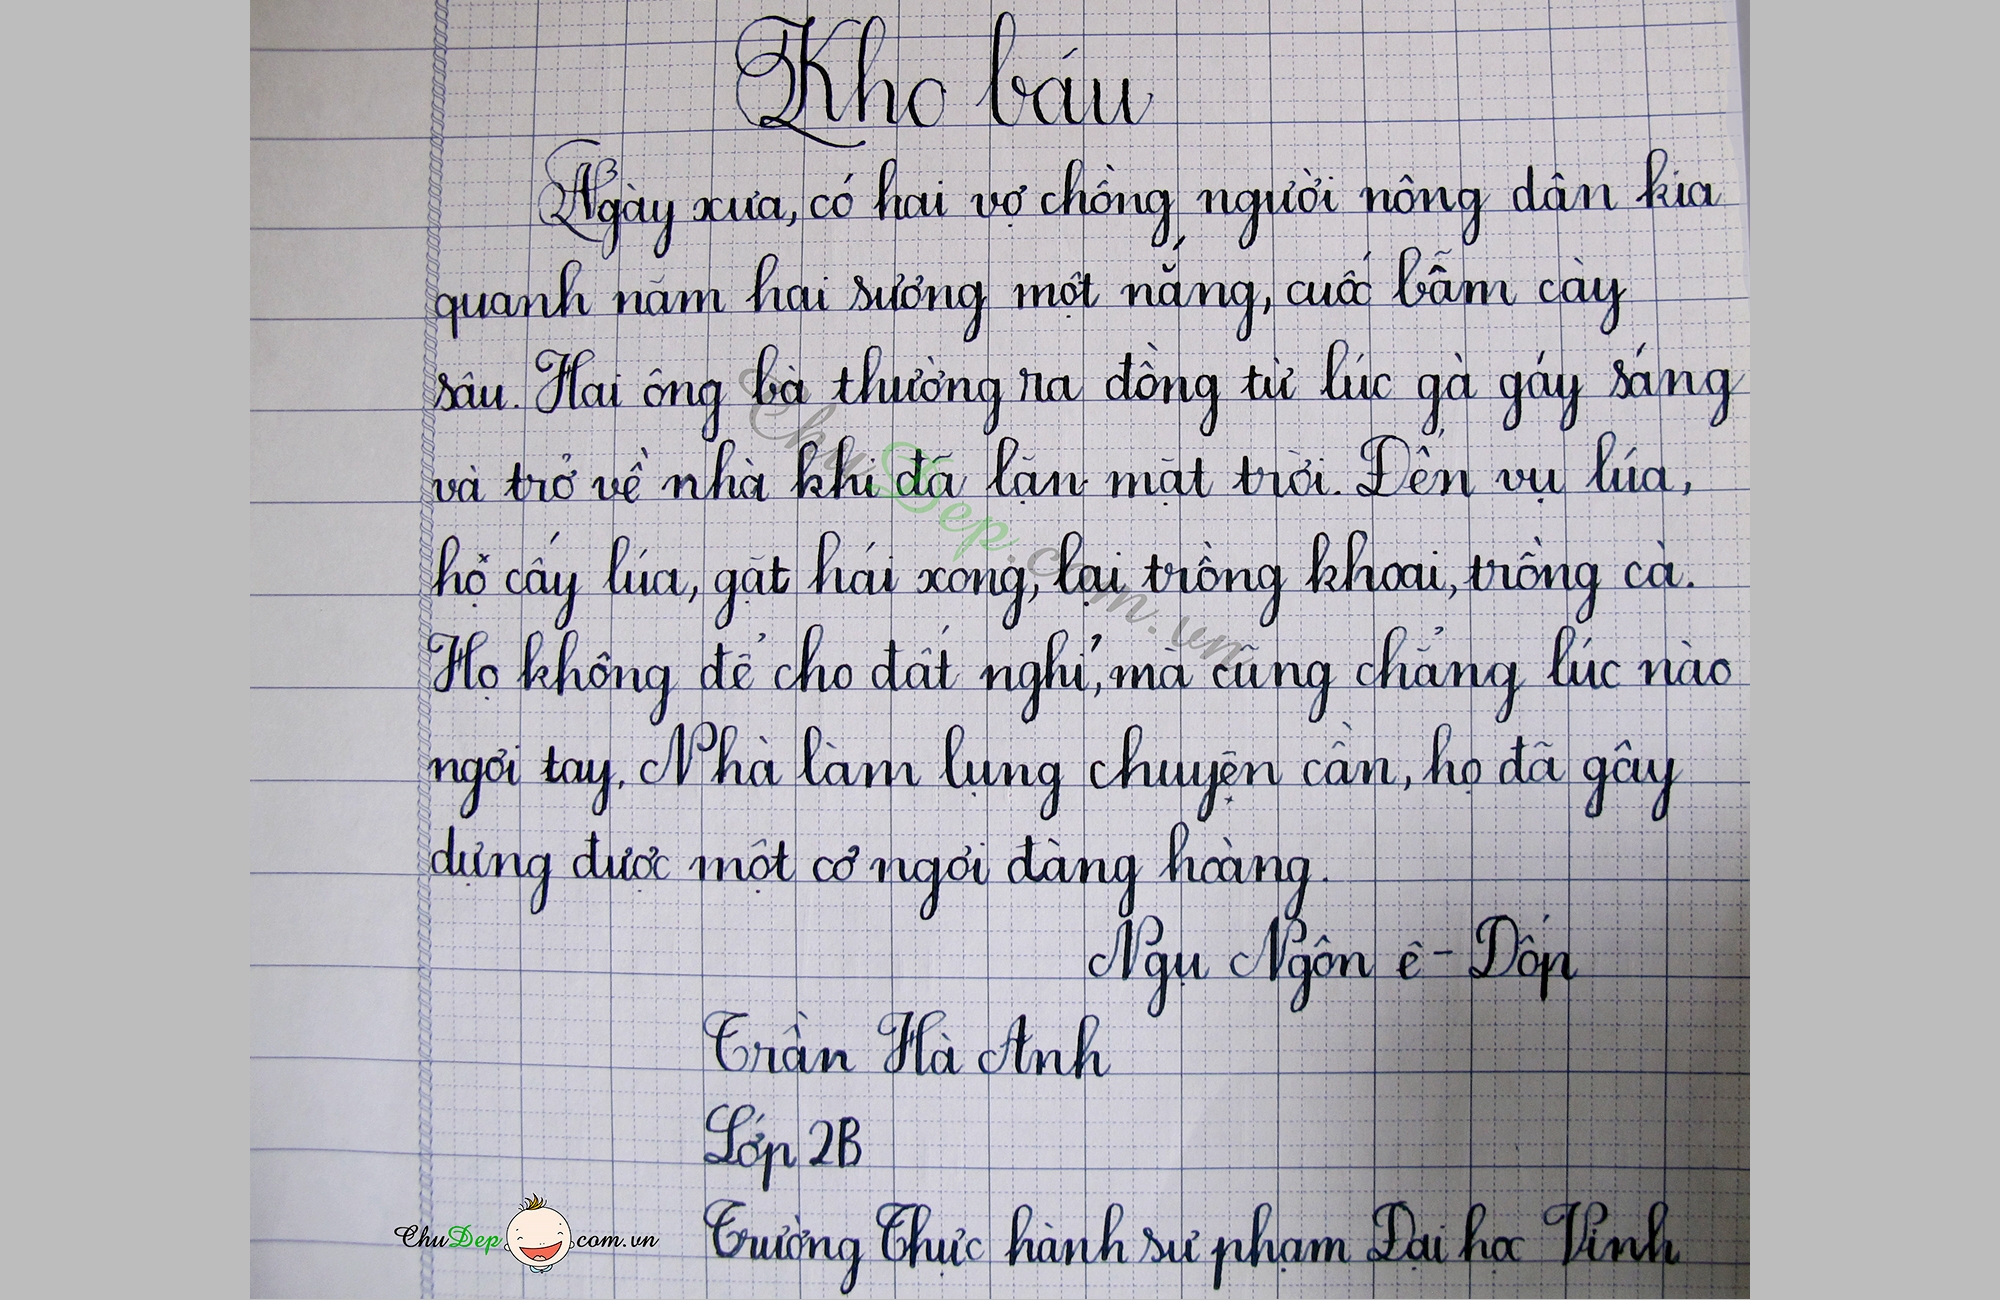 Kho báu
Ngày xưa, có hai vợ chồng người nông dân kia
quanh năm hai sương một nắng, cuốc bẫm cày
sâu. Hai ông bà thường ra đồng từ lúc gà gáy sáng
và trở về nhà khi đã lặn mặt trời. Đến vụ lúa,
họ cấy lúa, gặt hái xong, lại trồng khoai, trồng cà.
Họ không để cho đất nghỉ, mà cũng chẳng lúc nào
ngơi tay. Nhà làm lụng chuyện cần, họ đã gây
dựng được một cơ ngơi đàng hoàng.
Ngụ Ngôn ê - Dốp
Trần Hà Anh
Lớp 2B
Trường Thực hành sư phạm Đại học Vinh
ChuDep.com.vn
ChuDep com.vn